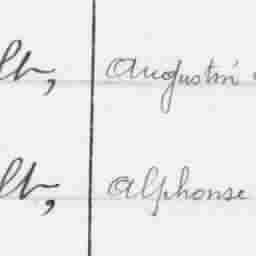 lt, Augustin
lt, Alphonse